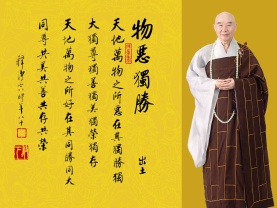 物惡獨勝
出土
天地萬物之所惡在其獨勝獨
大獨尊獨善獨美獨榮獨存
天地萬物之所好在其同勝同大
同尊共美共善共存共榮